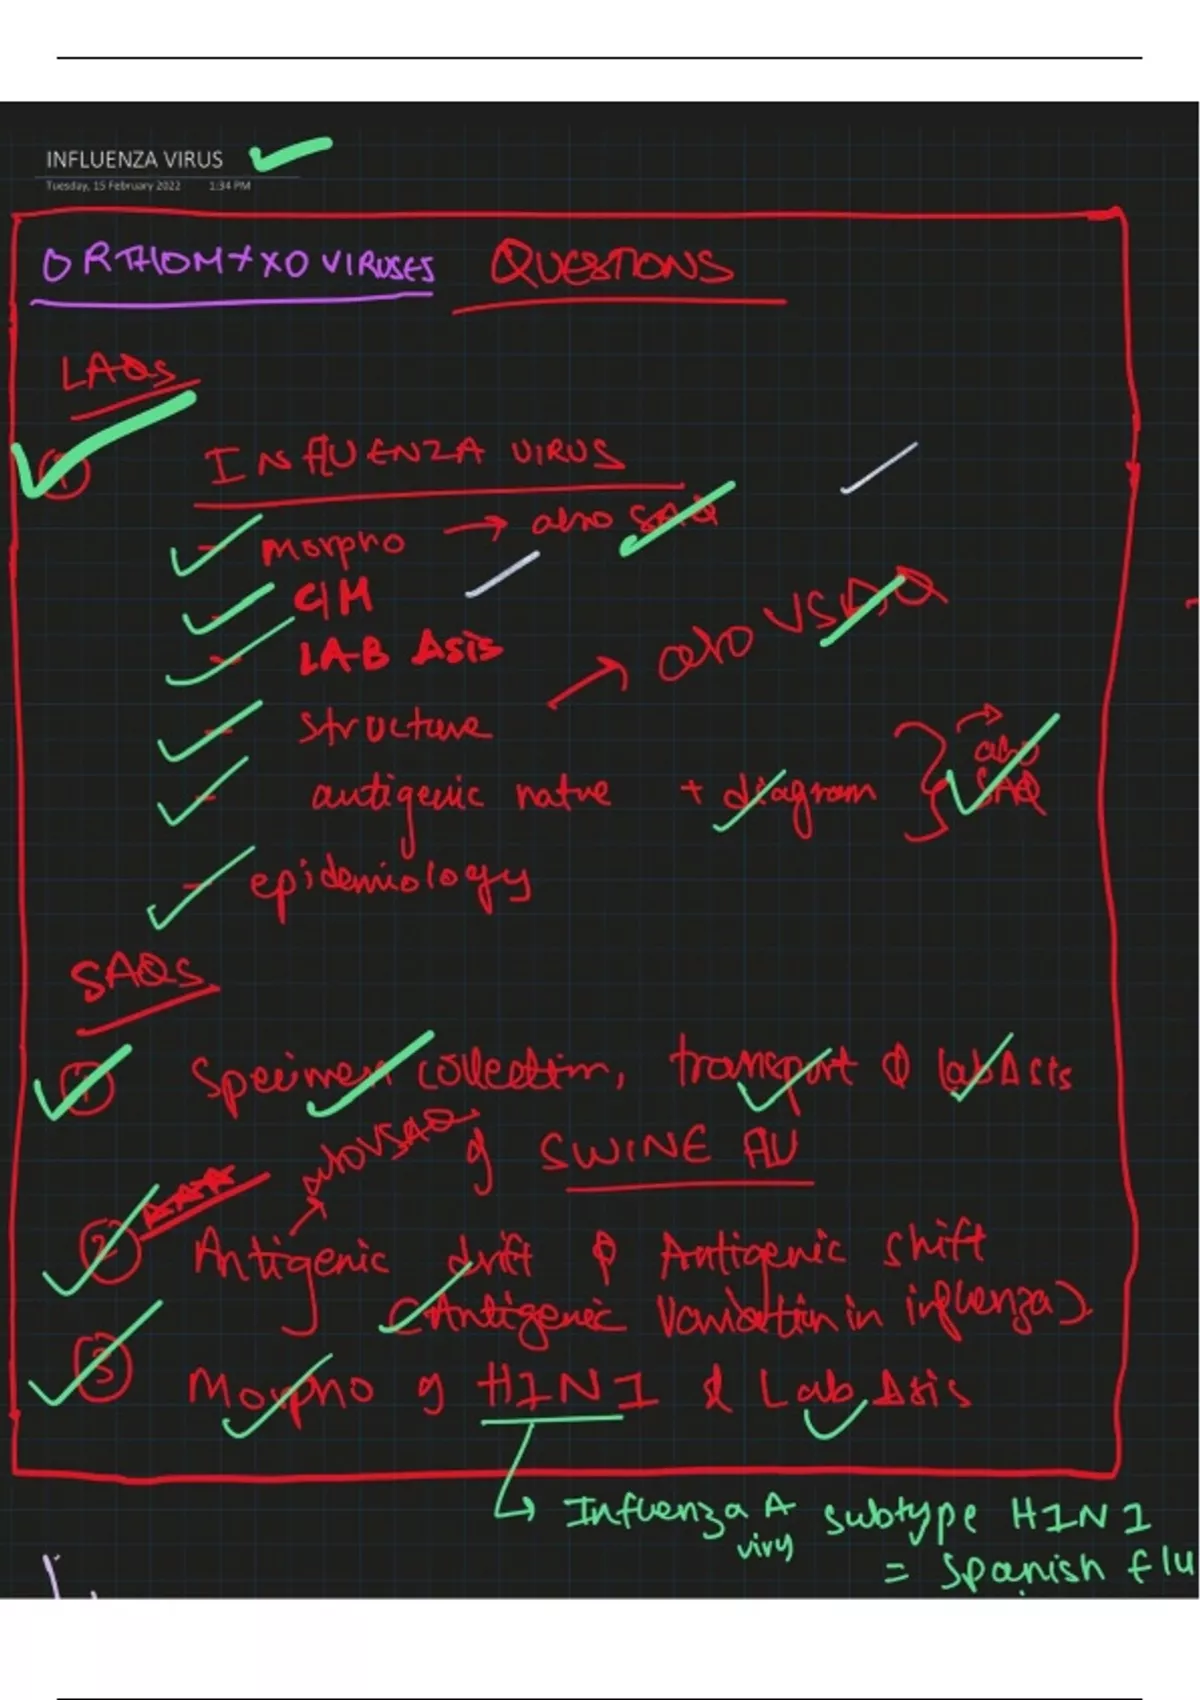 INFLUENZA VIRUS
Tuesday, 15 February 2022 1:34 PM
ORTHOMYXO VIRUSES QUESTIONS
LAQs
① INFLUENZA VIRUS
- Morpho → also SAQ
- C/M
- LAB Δsis
- structure → also VSAQ
- antigenic natre + diagram } → also SAQ
- epidemiology
SAQs
① Specimen collection, transport & lab Δsis
of SWINE FLU
② Antigenic drift & Antigenic shift → also VSAQ
(Antigenic Variation in influenza)
③ Morpho of H1N1 & Lab Δsis
↳ Influenza A virus subtype H1N1
= Spanish flu